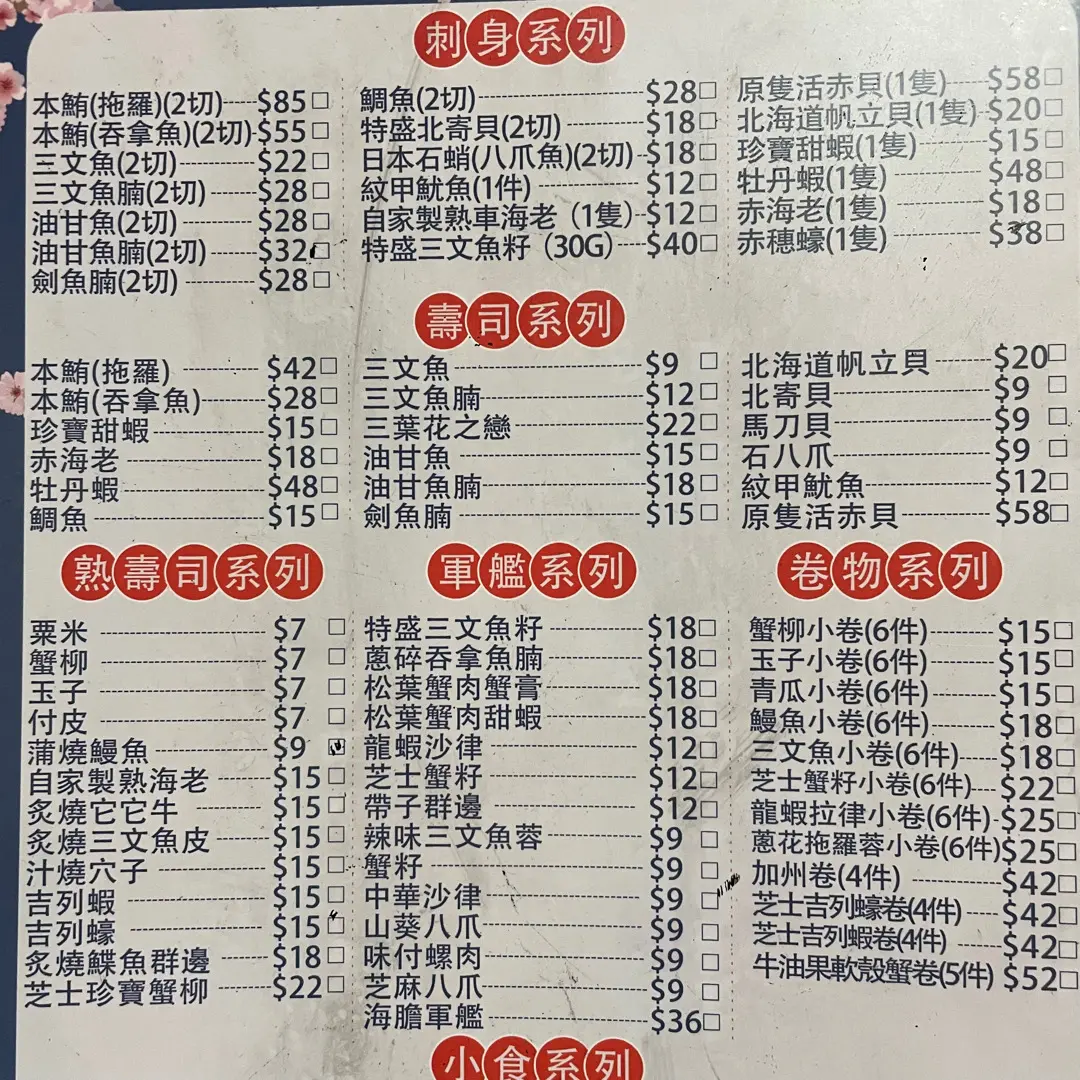 刺身系列
本鮪(拖羅)(2切)----$85□
本鮪(吞拿魚)(2切)-$55□
三文魚(2切)----------$22□
三文魚腩(2切)-------$28□
油甘魚(2切)----------$28□
油甘魚腩(2切)-------$32□
劍魚腩(2切)----------$28□
鯛魚(2切)----------$28□
特盛北寄貝(2切)----------$18□
日本石蛸(八爪魚)(2切)-$18□
紋甲魷魚(1件)----------$12□
自家製熟車海老（1隻）-$12□
特盛三文魚籽（30G）---$40□
原隻活赤貝(1隻)----$58□
北海道帆立貝(1隻)-$20□
珍寶甜蝦(1隻)----------$15□
牡丹蝦(1隻)----------$48□
赤海老(1隻)----------$18□
赤穗蠔(1隻)----------$38□
壽司系列
本鮪(拖羅)----------$42□
本鮪(吞拿魚)-------$28□
珍寶甜蝦----------$15□
赤海老----------$18□
牡丹蝦----------$48□
鯛魚----------$15□
三文魚----------$9□
三文魚腩----------$12□
三葉花之戀----------$22□
油甘魚----------$15□
油甘魚腩----------$18□
劍魚腩----------$15□
北海道帆立貝-------$20□
北寄貝----------$9□
馬刀貝----------$9□
石八爪----------$9□
紋甲魷魚----------$12□
原隻活赤貝----------$58□
熟壽司系列
粟米----------$7□
蟹柳----------$7□
玉子----------$7□
付皮----------$7□
蒲燒鰻魚----------$9□
自家製熟海老------$15□
炙燒它它牛-------$15□
炙燒三文魚皮------$15□
汁燒穴子----------$15□
吉列蝦----------$15□
吉列蠔----------$15□
炙燒鰈魚群邊------$18□
芝士珍寶蟹柳------$22□
軍艦系列
特盛三文魚籽----------$18□
蔥碎吞拿魚腩----------$18□
松葉蟹肉蟹膏----------$18□
松葉蟹肉甜蝦----------$18□
龍蝦沙律----------$12□
芝士蟹籽----------$12□
帶子群邊----------$12□
辣味三文魚蓉----------$9□
蟹籽----------$9□
中華沙律----------$9□
山葵八爪----------$9□
味付螺肉----------$9□
芝麻八爪----------$9□
海膽軍艦----------$36□
卷物系列
蟹柳小卷(6件)-------$15□
玉子小卷(6件)-------$15□
青瓜小卷(6件)-------$15□
鰻魚小卷(6件)-------$18□
三文魚小卷(6件)----$18□
芝士蟹籽小卷(6件)---$22□
龍蝦拉律小卷(6件)-$25□
蔥花拖羅蓉小卷(6件)$25□
加州卷(4件)----------$42□
芝士吉列蠔卷(4件)----$42□
芝士吉列蝦卷(4件)----$42□
牛油果軟殼蟹卷(5件)$52□
小食系列